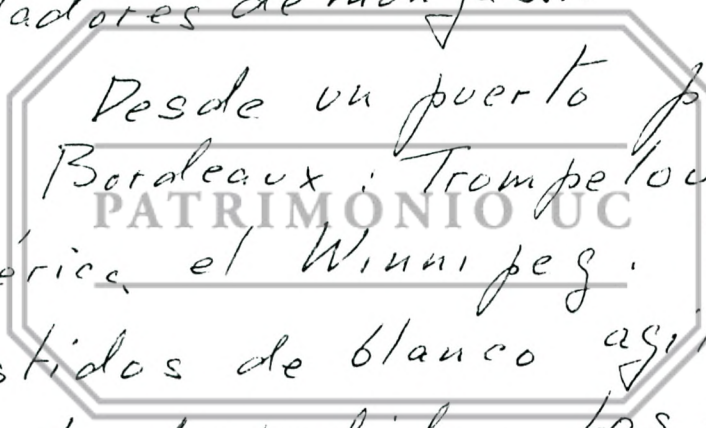 adores de
Desde un puerto p
Bordeaux: Trompelou
PATRIMONIO UC
érica el Winnipeg.
stidos de blanco agi
los